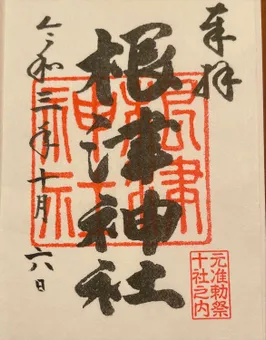 奉拝
根津神社
令和三年十月六日
根津神社
元准勅祭
十社之内